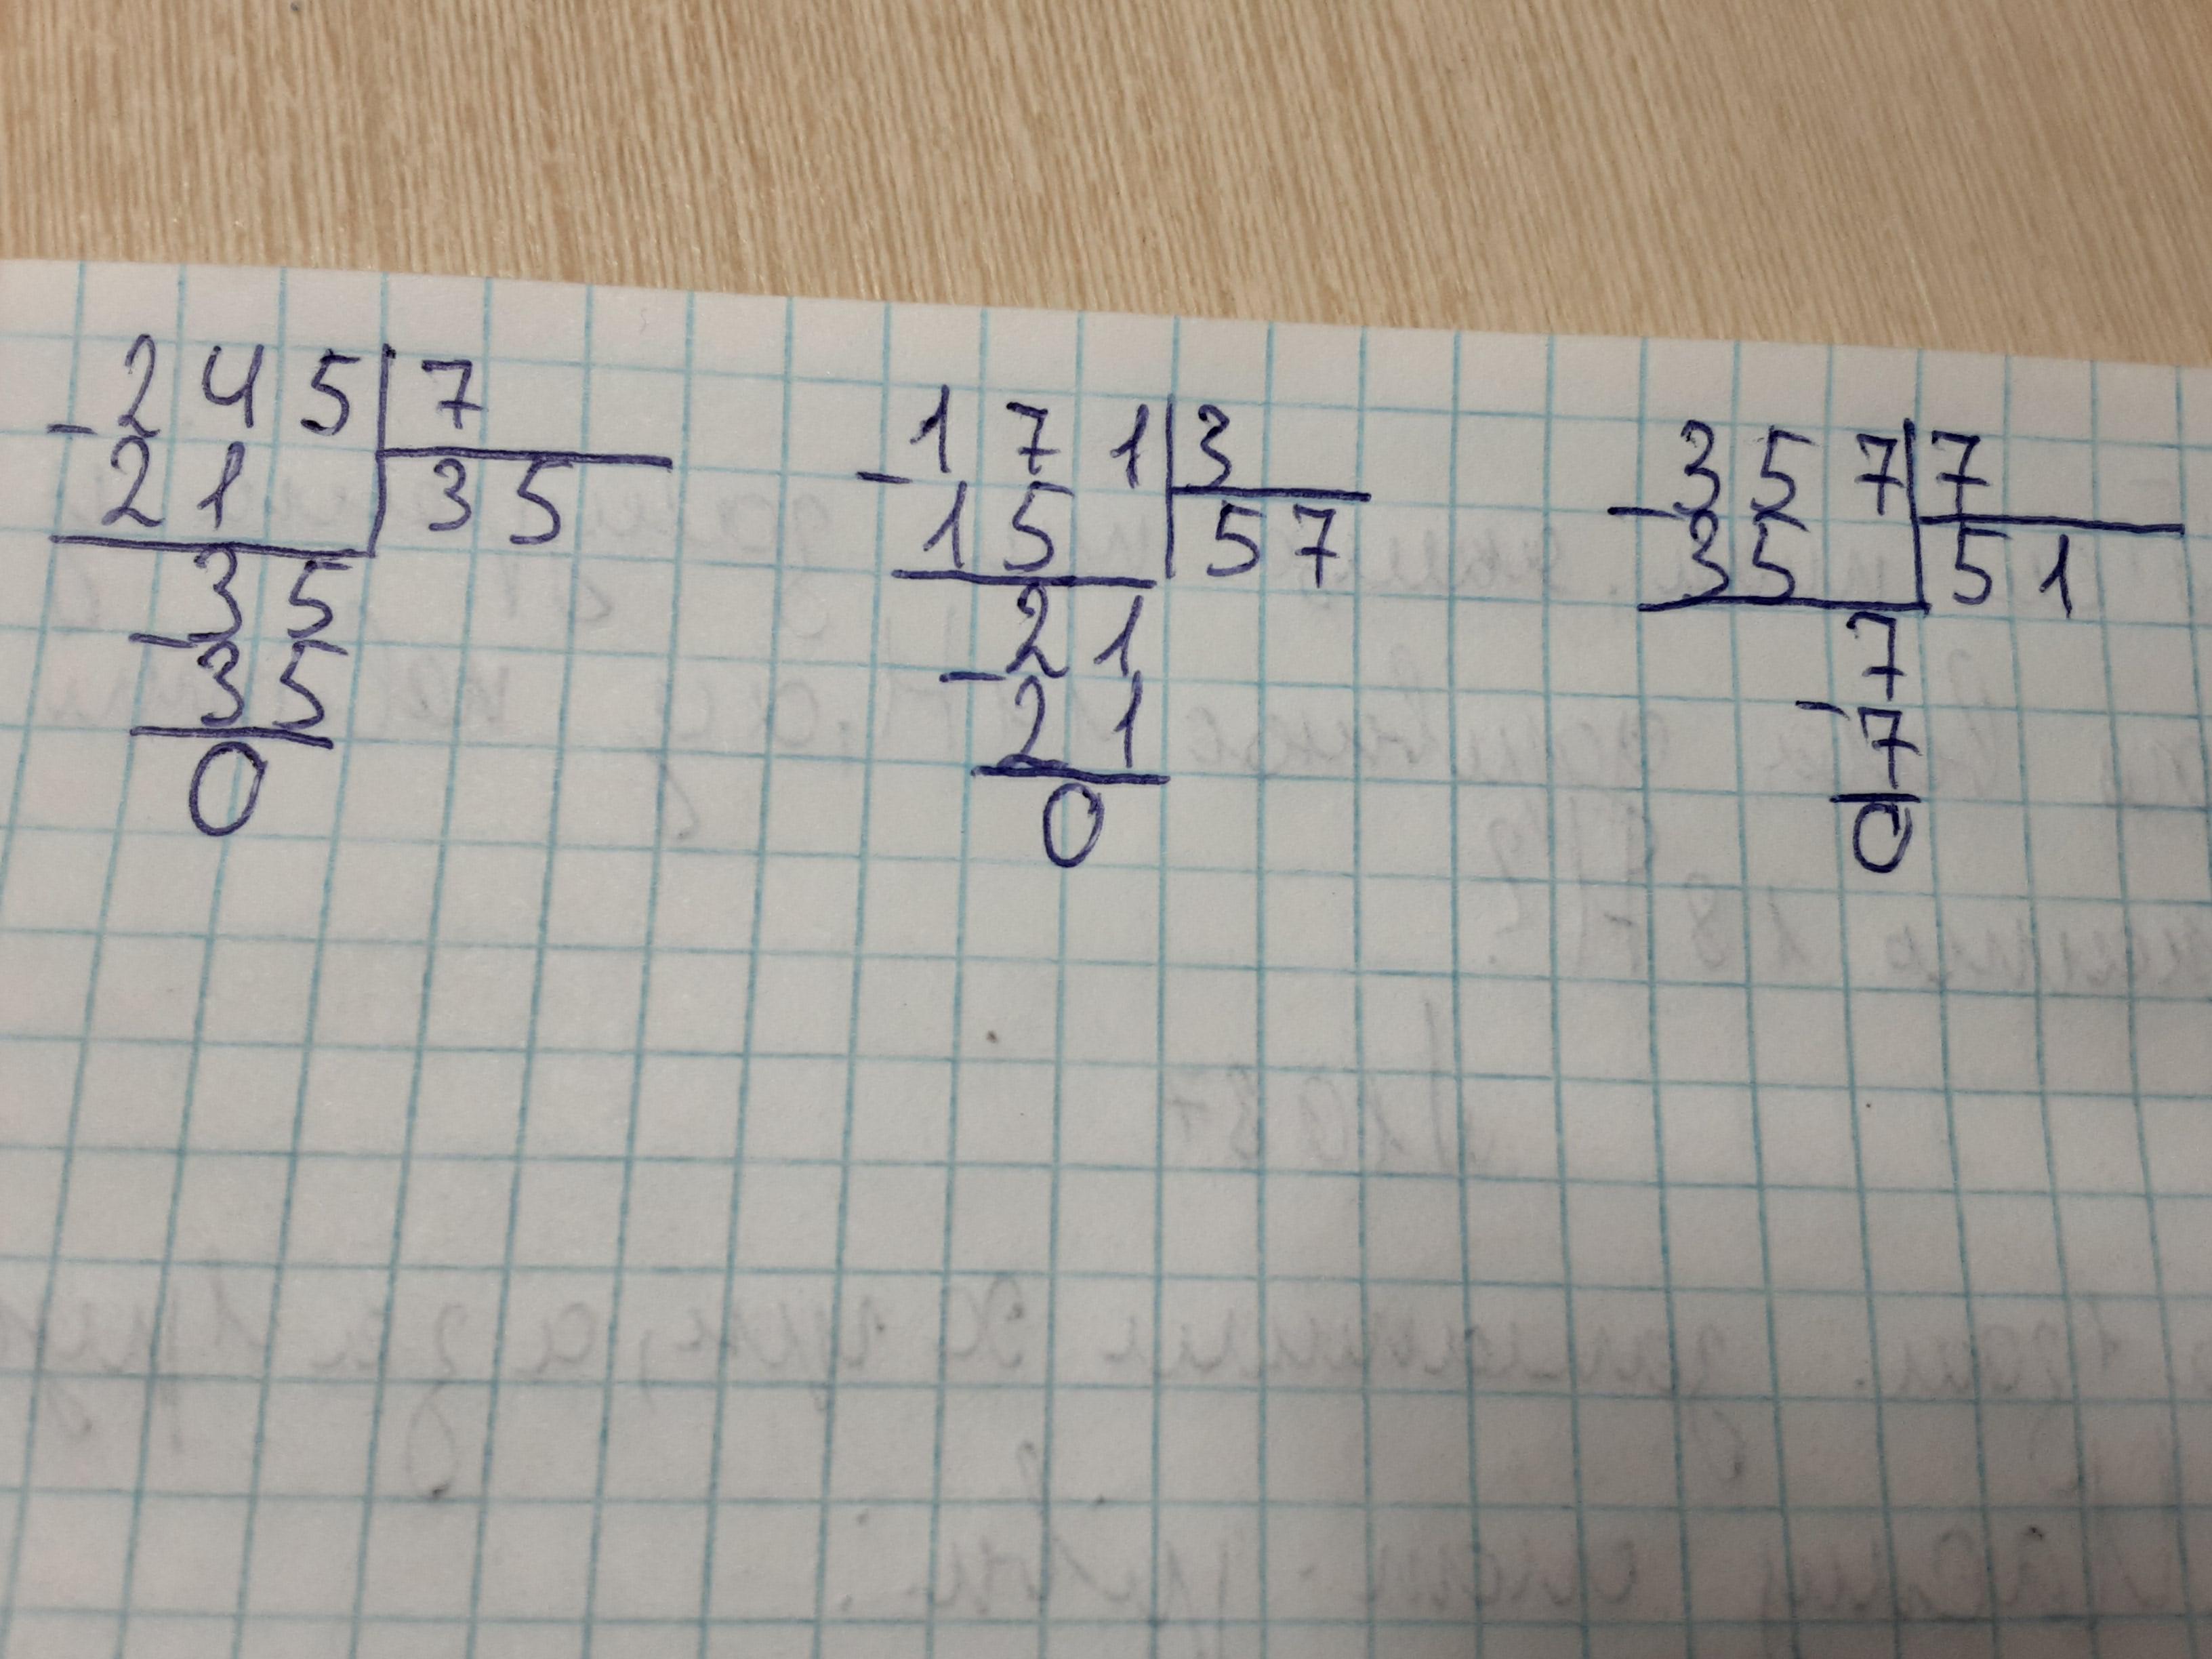 245 7
-
21 35
35
-
35
0
171 3
-
15 57
21
-
21
0
357 7
-
35 51
7
-
7
0